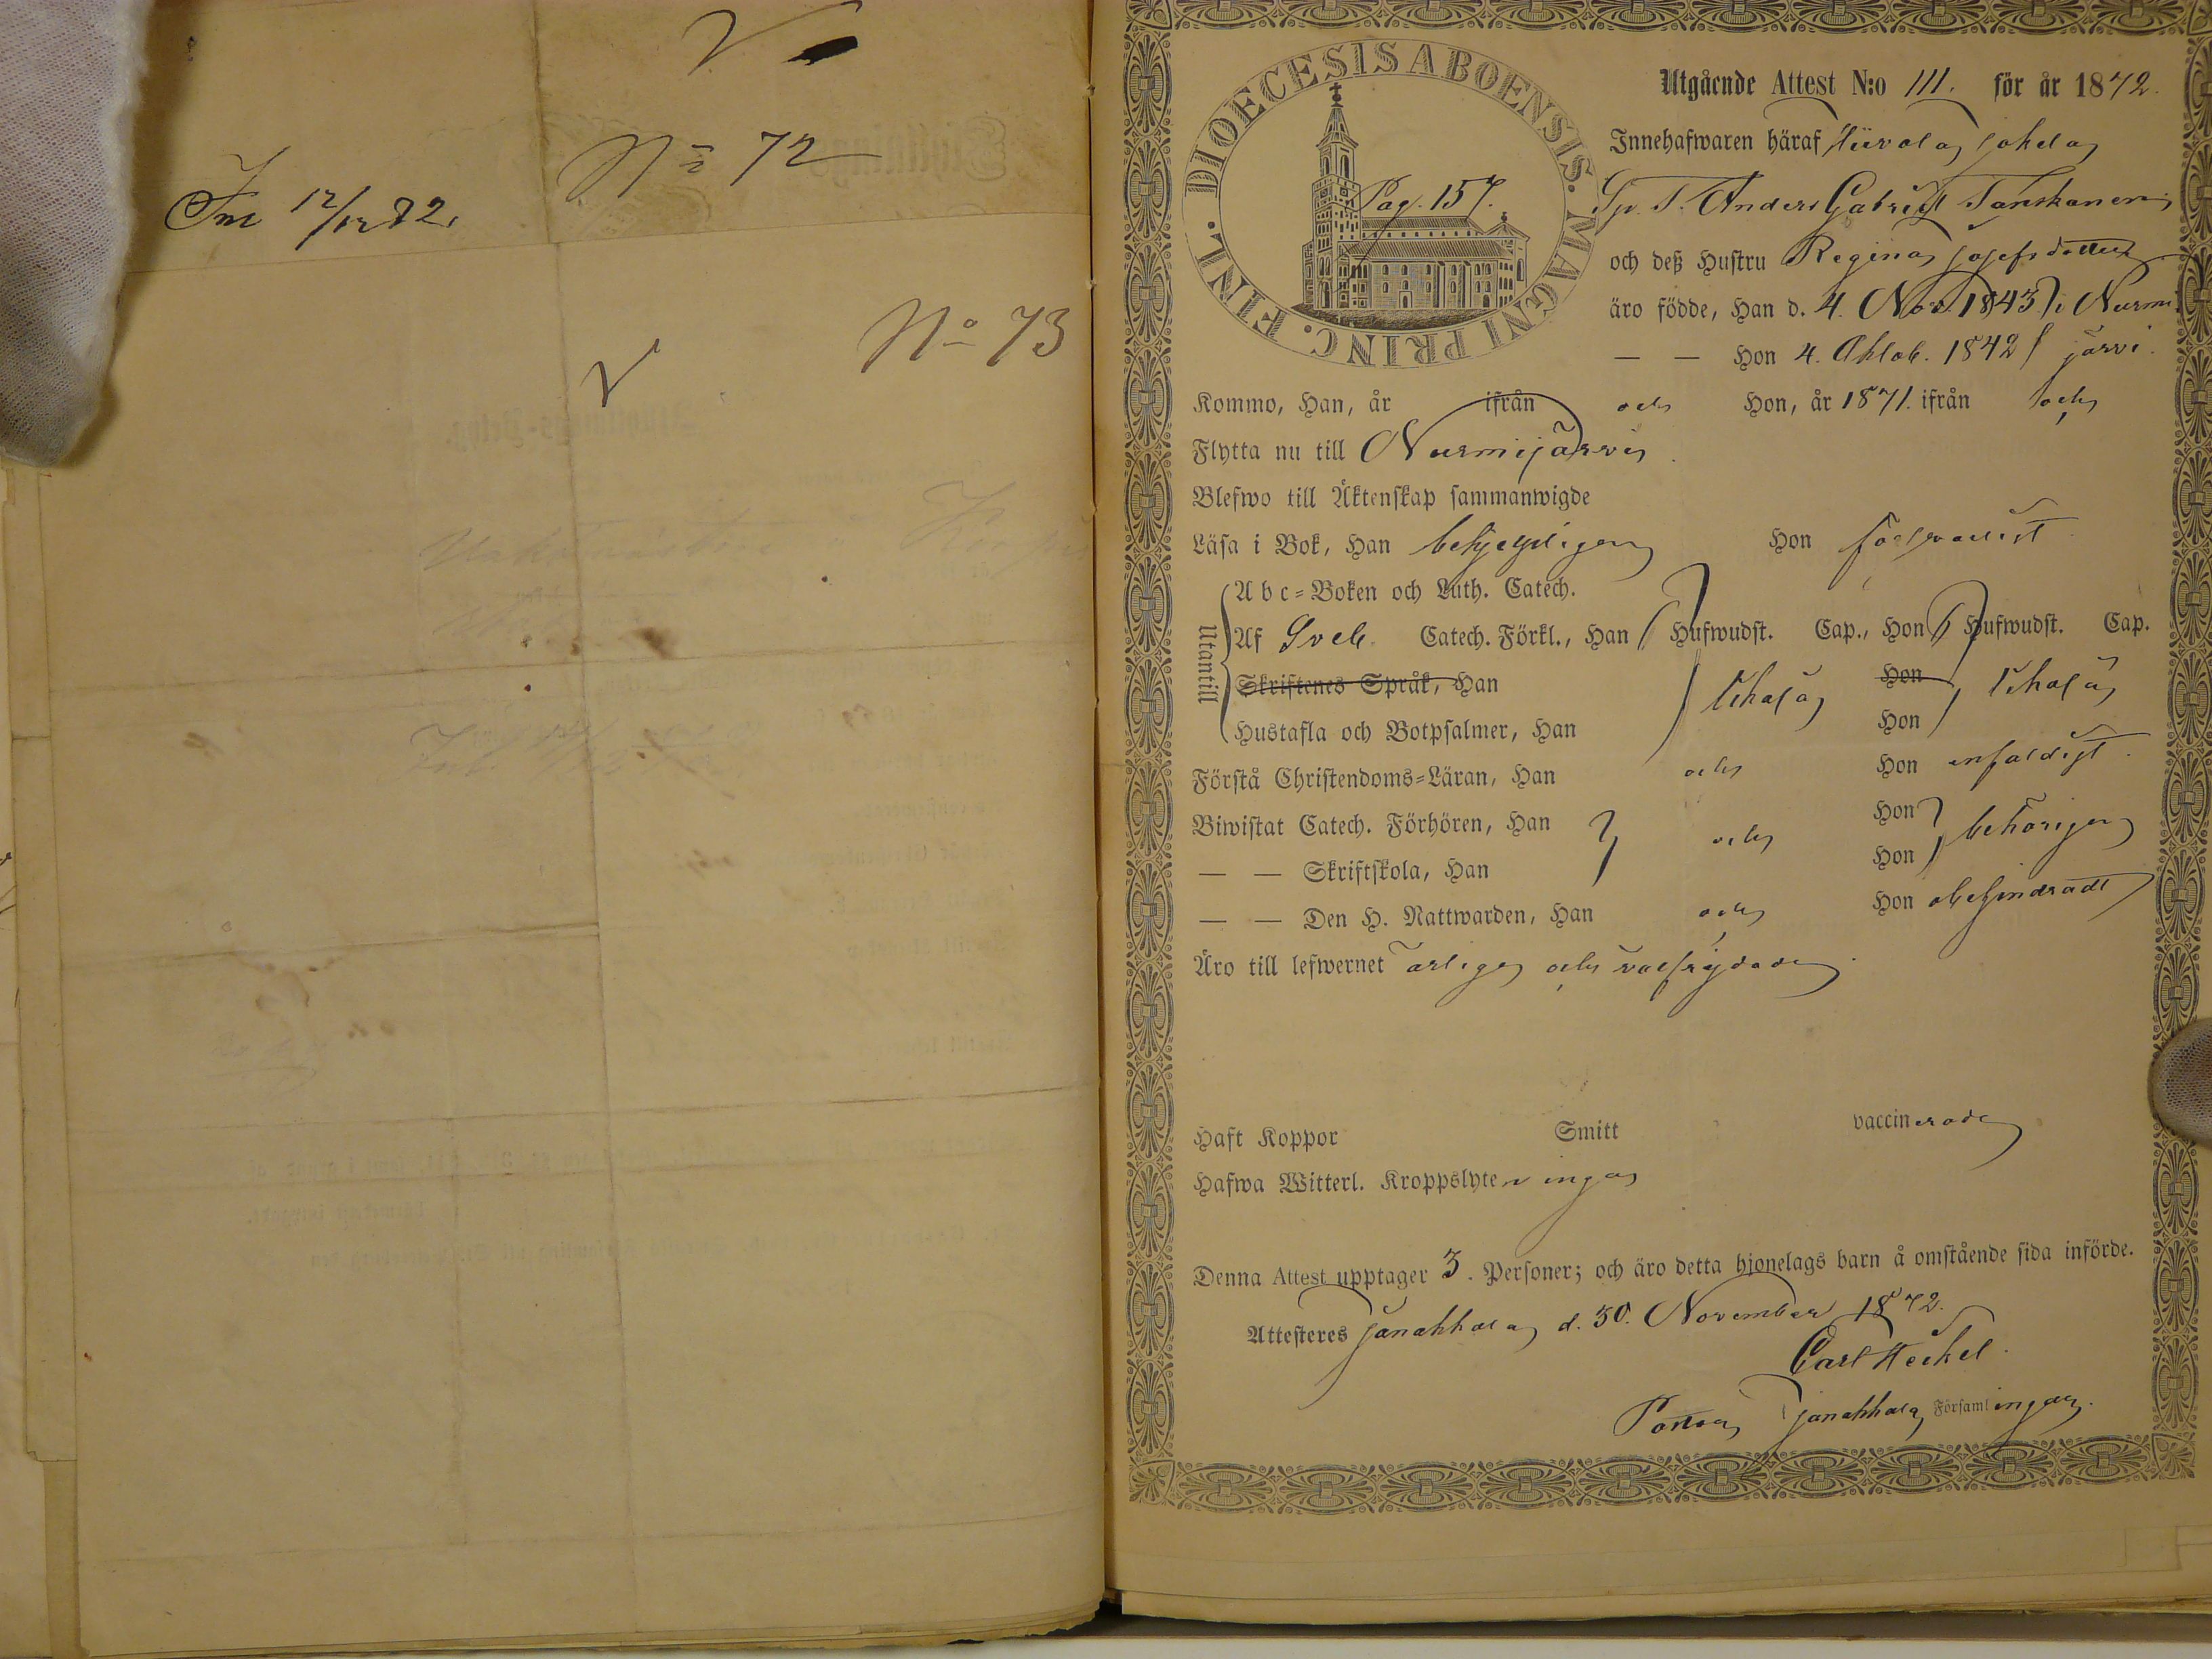 V
Nº 72
Inl 12/12 72.
Nº 73
V
DIOECESIS ABOENSIS. MAGNI PRINC. FINL.
Pag. 157.
Utgående Attest N:o 111. för år 1872.
Innehafwaren häraf Jokela
Sp. T. Anders Gabriel Tanskanen
och deß Hustru Regina Josefsdotter
äro födde, Han d. 4. Nov. 1843 } i Nurmi
— — Hon 4. Oktob. 1842 } järvi.
Kommo, Han, år ifrån och Hon, år 1871. ifrån och
Flytta nu till Nurmijärvi
Blefwo till Äktenskap sammanwigde
Läsa i Bok, Han behjelpligen Hon försvarligt
Utantill
A b c-Boken och Luth. Catech.
Af Sveb. Catech. Förkl., Han Hufwudst. Cap., Hon Hufwudst. Cap.
Skriftenes Språk, Han Hon
likaså likaså
Hustafla och Botpsalmer, Han Hon
Förstå Christendoms-Läran, Han och Hon enfaldigt.
Biwistat Catech. Förhören, Han Hon
och behörigen
— — Skriftskola, Han Hon
— — Den H. Nattwarden, Han och Hon obehindradt
Äro till lefwernet ärliga och välfrejdade.
Haft Koppor Smitt vaccinerade
Hafwa Witterl. Kroppslyten inga
Denna Attest upptager 3. Personer; och äro detta hjonelags barn å omstående sida införde.
Attesteres Janakkala d. 30. November 1872.
Carl Heikel.
Pastor i Janakkala Församlingar.